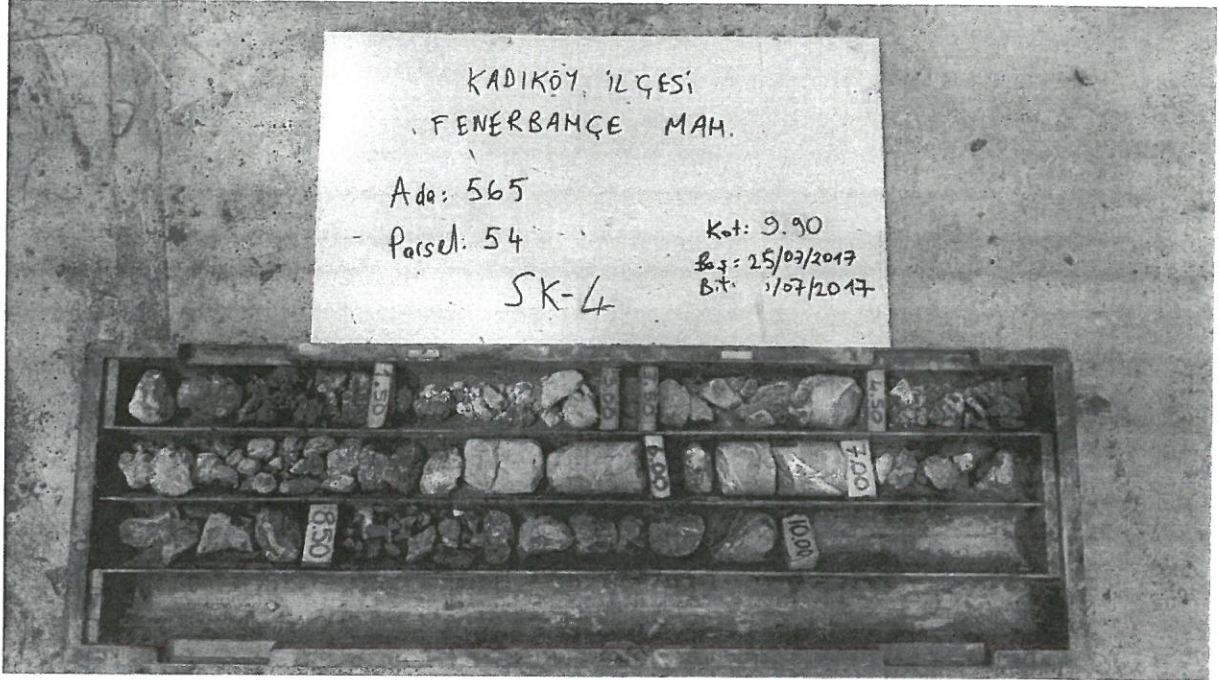 KADIKÖY İLÇESİ
FENERBAHÇE MAH.
Ada: 565
Parsel: 54
SK-4
Kot: 9.90
Baş: 25/07/2017
Bit: /07/2017
1.50
4.50
6.00
7.00
8.50
10.00